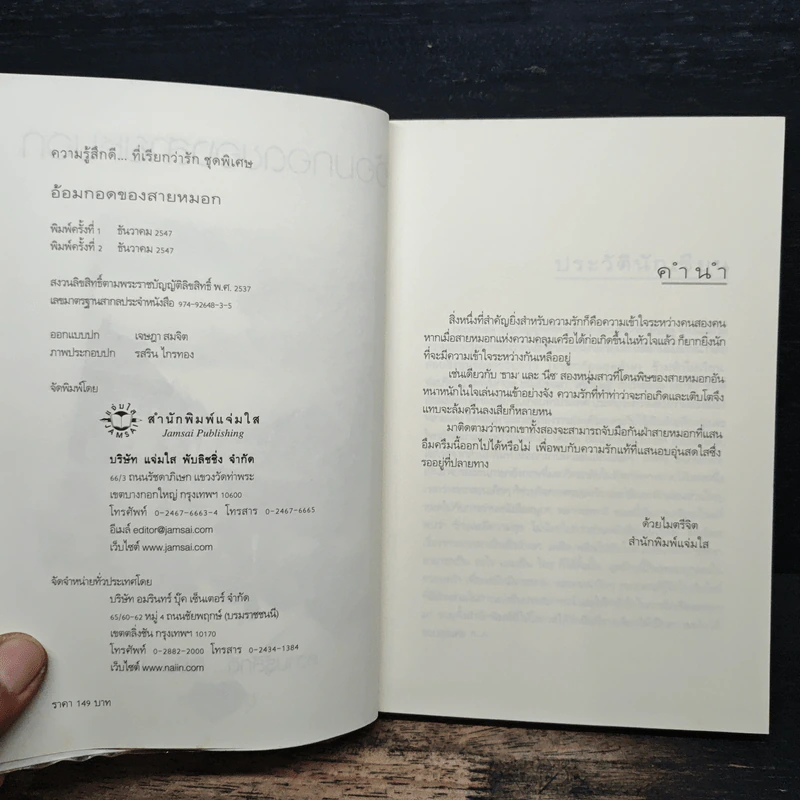 ความรู้สึกดี... ที่เรียกว่ารัก ชุดพิเศษ
อ้อมกอดของสายหมอก
พิมพ์ครั้งที่ 1 ธันวาคม 2547
พิมพ์ครั้งที่ 2 ธันวาคม 2547
สงวนลิขสิทธิ์ตามพระราชบัญญัติลิขสิทธิ์ พ.ศ. 2537
เลขมาตรฐานสากลประจำหนังสือ 974-92648-3-5
ออกแบบปก เจษฎา สมจิต
ภาพประกอบปก รสริน ไกรทอง
จัดพิมพ์โดย
แจ่มใส
JAMSAI
สำนักพิมพ์แจ่มใส
Jamsai Publishing
บริษัท แจ่มใส พับลิชชิ่ง จำกัด
66/3 ถนนรัชดาภิเษก แขวงวัดท่าพระ
เขตบางกอกใหญ่ กรุงเทพฯ 10600
โทรศัพท์ 0-2467-6663-4 โทรสาร 0-2467-6665
อีเมล์ editor@jamsai.com
เว็บไซต์ www.jamsai.com
จัดจำหน่ายทั่วประเทศโดย
บริษัท อมรินทร์ บุ๊ค เซ็นเตอร์ จำกัด
65/60-62 หมู่ 4 ถนนชัยพฤกษ์ (บรมราชชนนี)
เขตตลิ่งชัน กรุงเทพฯ 10170
โทรศัพท์ 0-2882-2000 โทรสาร 0-2434-1384
เว็บไซต์ www.naiin.com
ราคา 149 บาท
คำนำ
สิ่งหนึ่งที่สำคัญยิ่งสำหรับความรักก็คือความเข้าใจระหว่างคนสองคน
หากเมื่อสายหมอกแห่งความคลุมเครือได้ก่อเกิดขึ้นในหัวใจแล้ว ก็ยากยิ่งนัก
ที่จะมีความเข้าใจระหว่างกันเหลืออยู่
เช่นเดียวกับ 'ชาม' และ 'นีซ' สองหนุ่มสาวที่โดนพิษของสายหมอกอัน
หนาหนักในใจเล่นงานเข้าอย่างจัง ความรักที่ทำท่าว่าจะก่อเกิดและเติบโตจึง
แทบจะล้มครืนลงเสียก็หลายหน
มาติดตามว่าพวกเขาทั้งสองจะสามารถจับมือกันฝ่าสายหมอกที่แสน
อึมครึมนี้ออกไปได้หรือไม่ เพื่อพบกับความรักแท้ที่แสนอบอุ่นสดใสซึ่ง
รออยู่ที่ปลายทาง
ด้วยไมตรีจิต
สำนักพิมพ์แจ่มใส